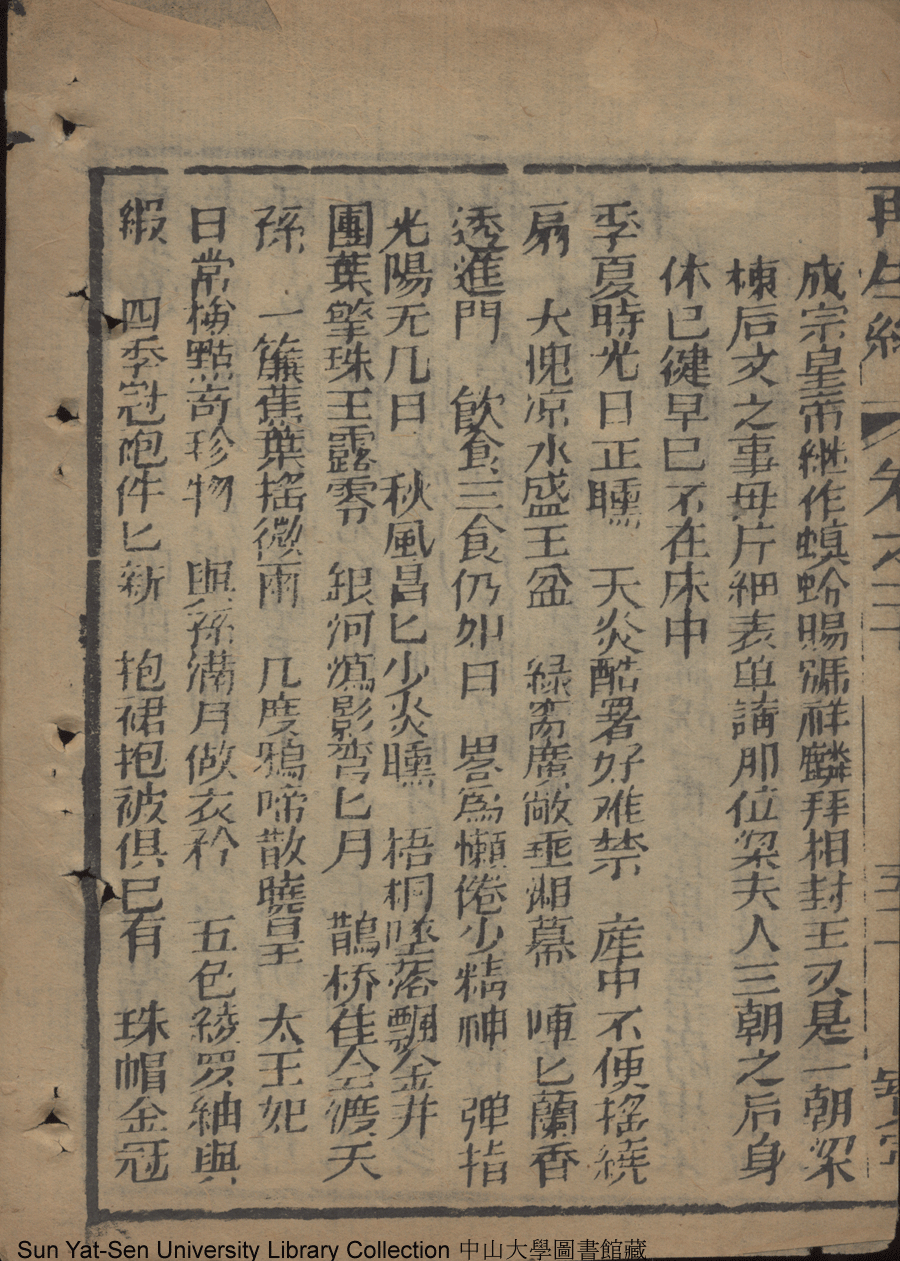 再生緣 卷之 五十
成宗皇帝継作螟蛉賜號祥麟拜相封王又是一朝梁
棟后文之事毋片細表单講那位梁夫人三朝之后身
休已徤早巳不在床中
季夏時光日正曛 天炎酷署好难禁 産中不便搖繞
扇 大愧凉水盛王盆 緑窓廣敞垂湘幕 陣匕蘭香
透進門 飲食三食仍如日 畧為懶倦少精神 弹指
光陽无几日 秋風昌匕少炎曛 梧桐墜落飄金井
團葉擎珠王露零 銀河瀉影弯匕月 鵲桥隹仝渡天
孫 一簾蕉葉搖微雨 几度鴉啼散曉星 太王妃
日常檢點奇珍物 與孫滿月做衣衿 五色綾罗紬與
緞 四季冠砲件匕新 抱裙抱被俱巳有 珠帽金冠
Sun Yat-Sen University Library Collection 中山大學圖書館藏